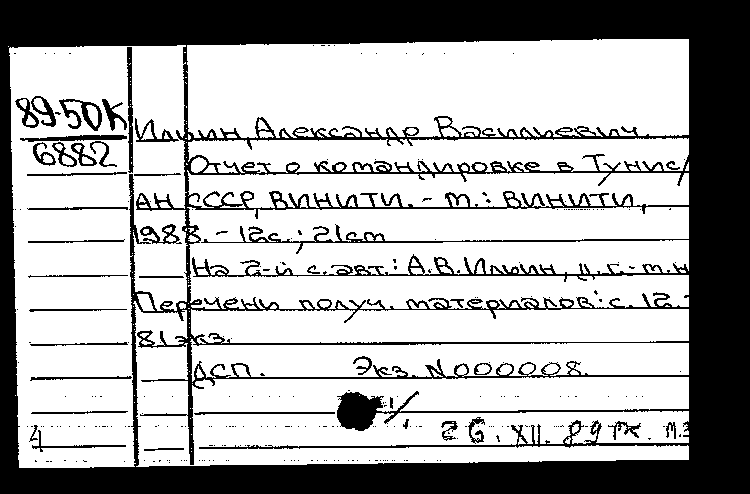 89-50К
6882
Ильин, Александр Васильевич.
Отчет о командировке в Тунис/
АН СССР, ВИНИТИ. - М.: ВИНИТИ,
1988. - 12с.; 21см
На 2-й с. авт.: А.В. Ильин, д. г.-м. н
Перечень получ. материалов: с. 12. -
81экз.
ДСП. Экз. N000008.
4
26. XII. 89